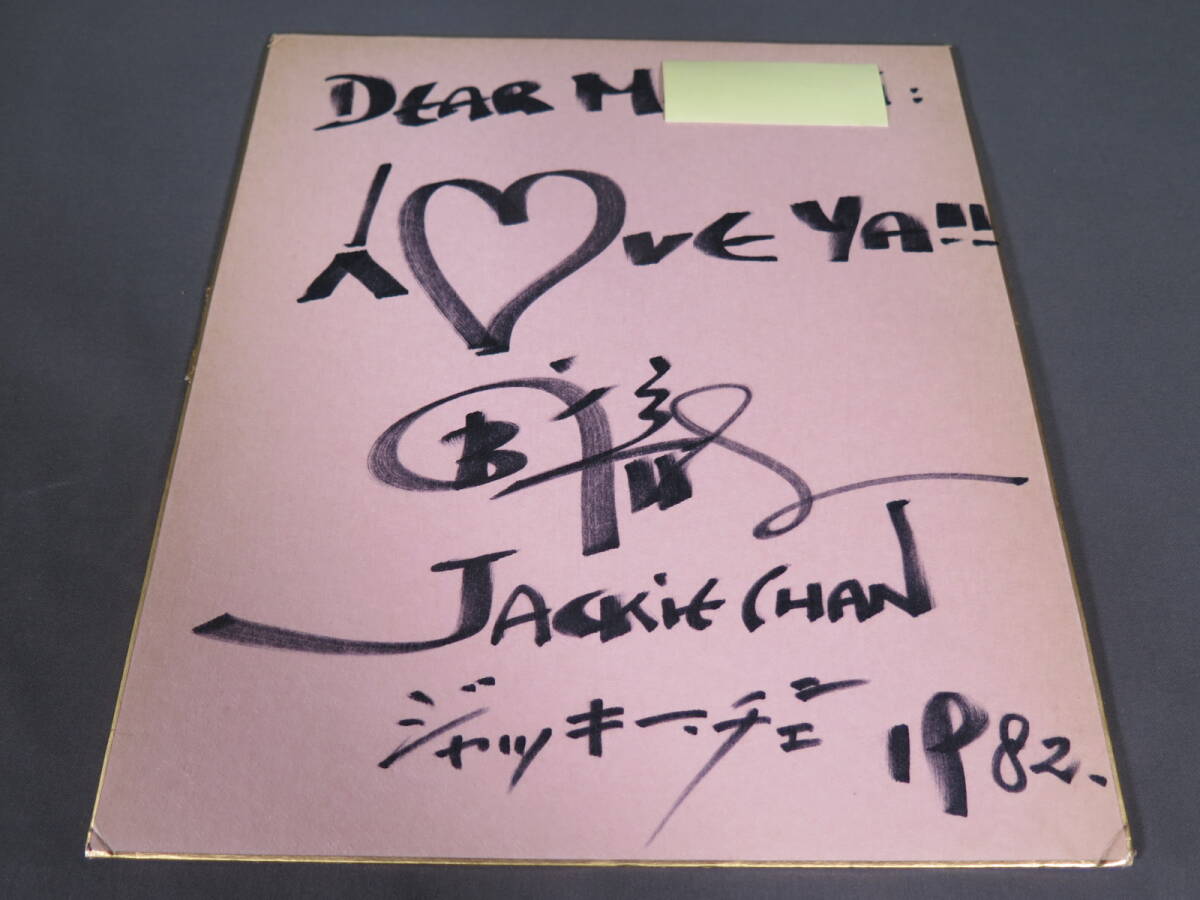 DEAR M :
I ♡VE YA!!
成龍
JACKIE CHAN
ジャッキー・チェン 1982.